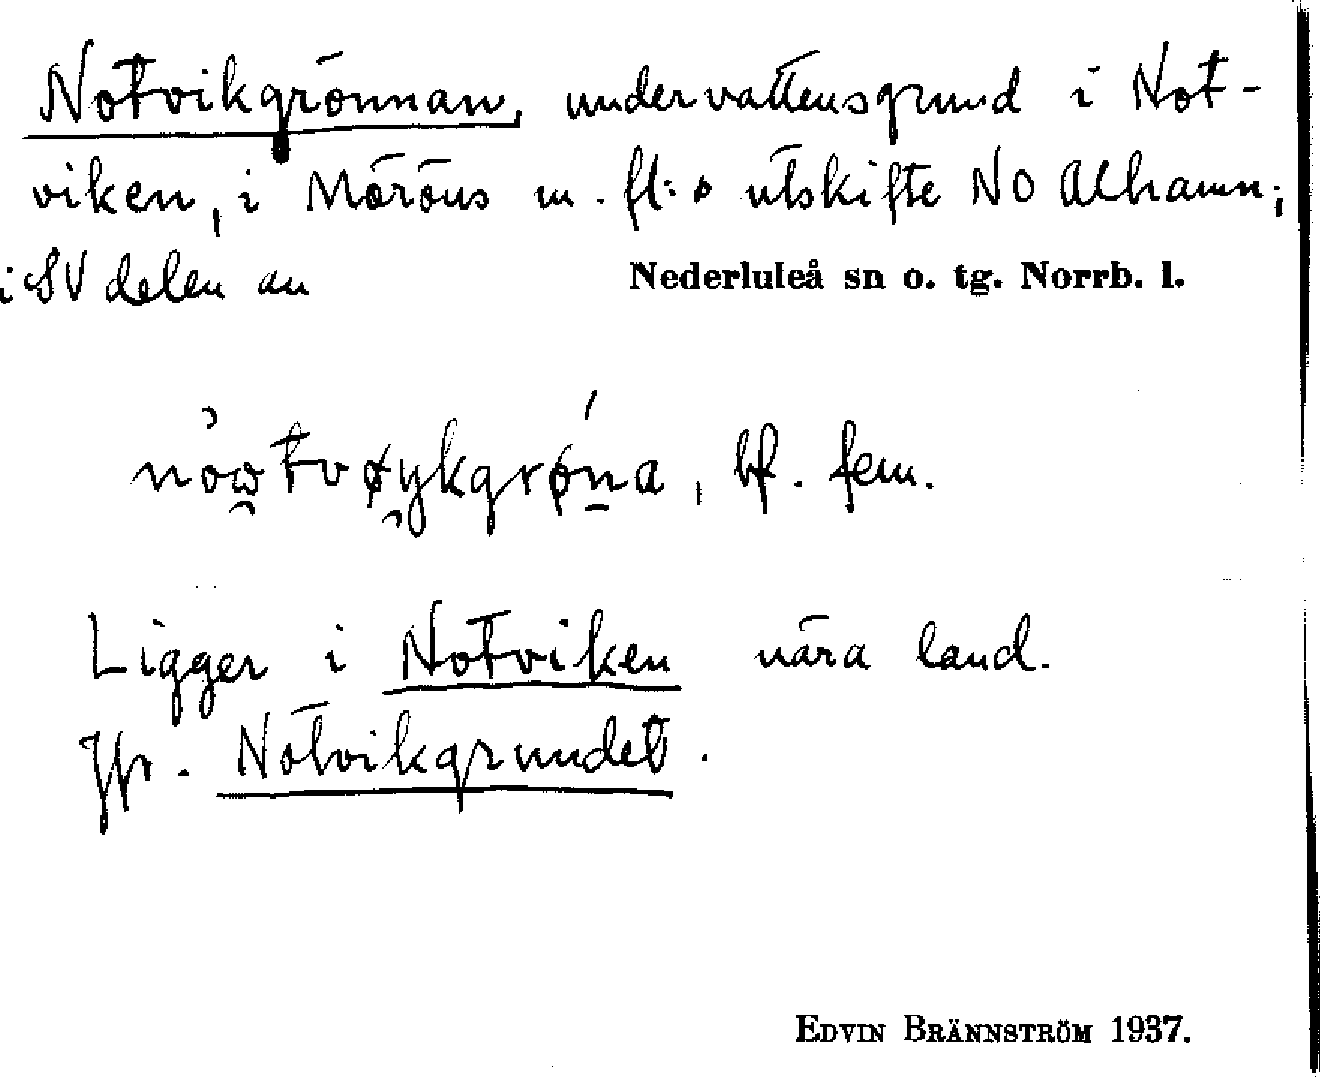 Notvikgrönnan, undervattensgrund i Not-
viken, i Möröns m. fl:s utskifte NO Alhamn;
i SV delen av
Nederluleå sn o. tg. Norrb. l.
bf. fem.
Ligger i Notviken nära land.
Jfr. Notvikgrundet.
EDVIN BRÄNNSTRÖM 1937.